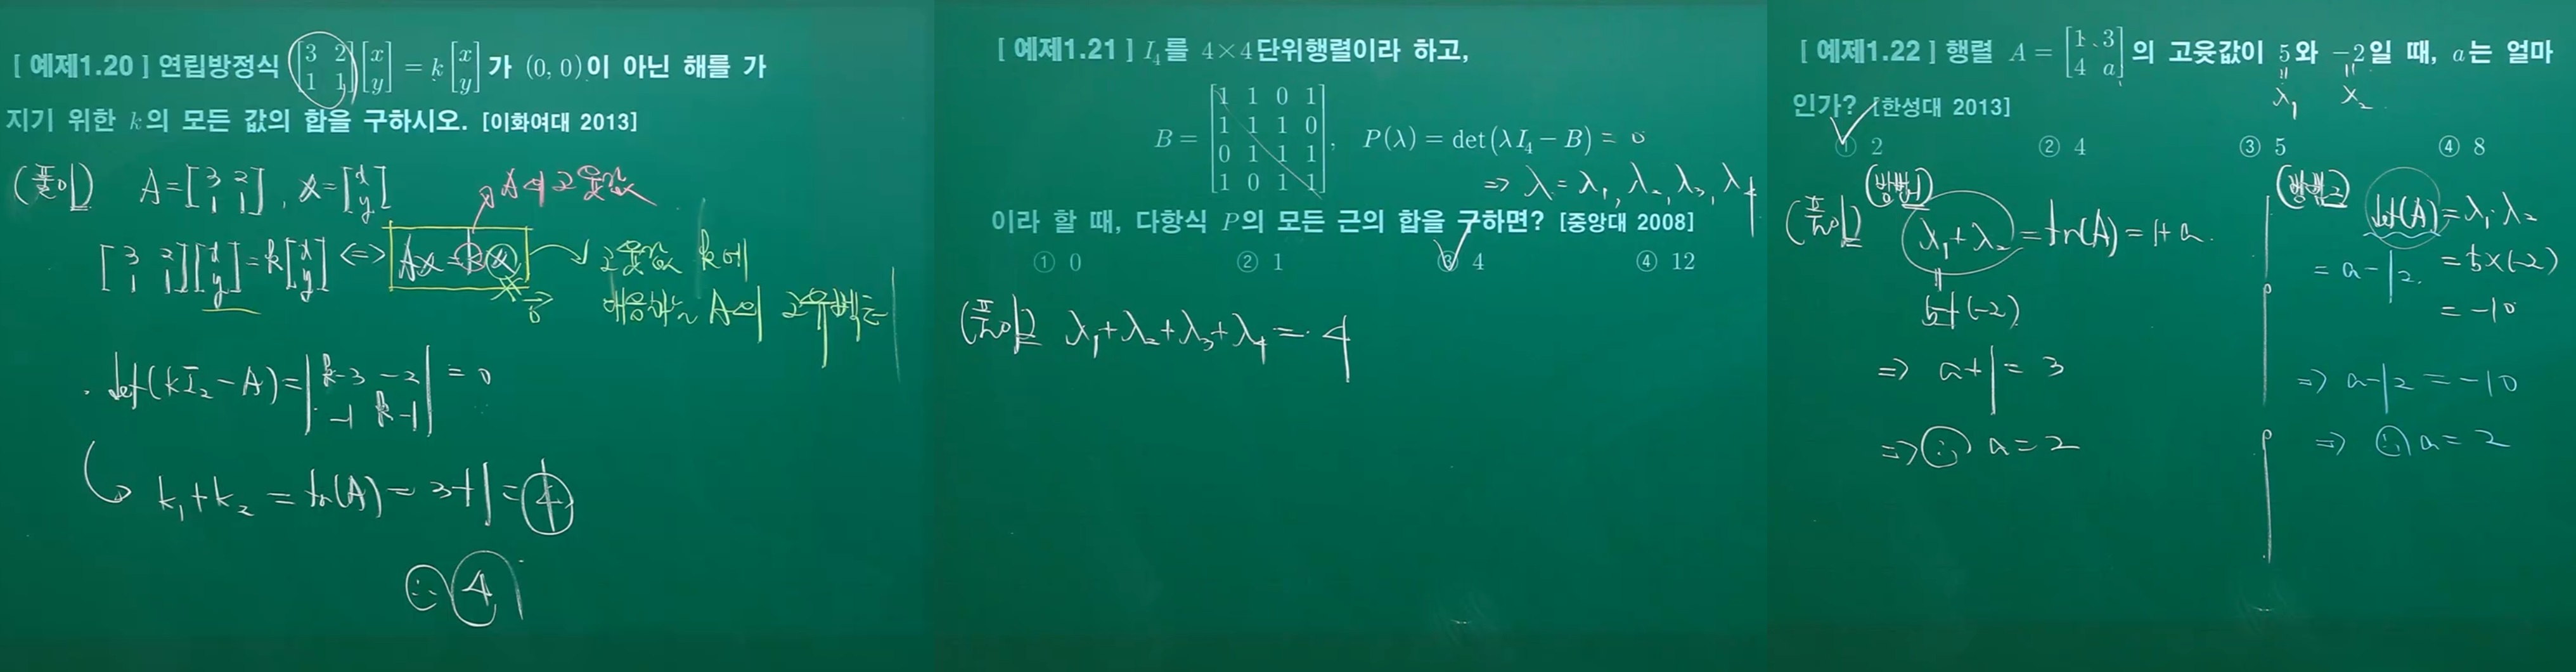 [ 예제1.20 ] 연립방정식 [3 2; 1 1][x; y] = k[x; y] 가 (0, 0)이 아닌 해를 가
지기 위한 k의 모든 값의 합을 구하시오. [이화여대 2013]
(풀이) A = [3 2; 1 1], x = [x; y]
A의 고윳값
[3 2; 1 1][x; y] = k[x; y] ⇔ Ax = kx
고윳값 k에
대응하는 A의 고유벡터
det(kI₂ - A) = |k-3 -2; -1 k-1| = 0
k₁ + k₂ = tr(A) = 3+1 = 4
∴ 4
[ 예제1.21 ] I₄를 4×4단위행렬이라 하고,
B = [1 1 0 1; 1 1 1 0; 0 1 1 1; 1 0 1 1], P(λ) = det(λI₄ - B) = 0
⇒ λ = λ₁, λ₂, λ₃, λ₄
이라 할 때, 다항식 P의 모든 근의 합을 구하면? [중앙대 2008]
① 0 ② 1 ③ 4 ④ 12
(풀이) λ₁ + λ₂ + λ₃ + λ₄ = 4
[ 예제1.22 ] 행렬 A = [1 3; 4 a] 의 고윳값이 5와 -2일 때, a는 얼마
인가? [한성대 2013]
λ₁ λ₂
① 2 ② 4 ③ 5 ④ 8
(풀이) (방법1)
λ₁ + λ₂ = tr(A) = 1+a.
5+(-2)
⇒ a+1 = 3
⇒ ∴ a = 2
(방법2) det(A) = λ₁·λ₂
= a-12 = 5×(-2)
= -10
⇒ a-12 = -10
⇒ ∴ a = 2